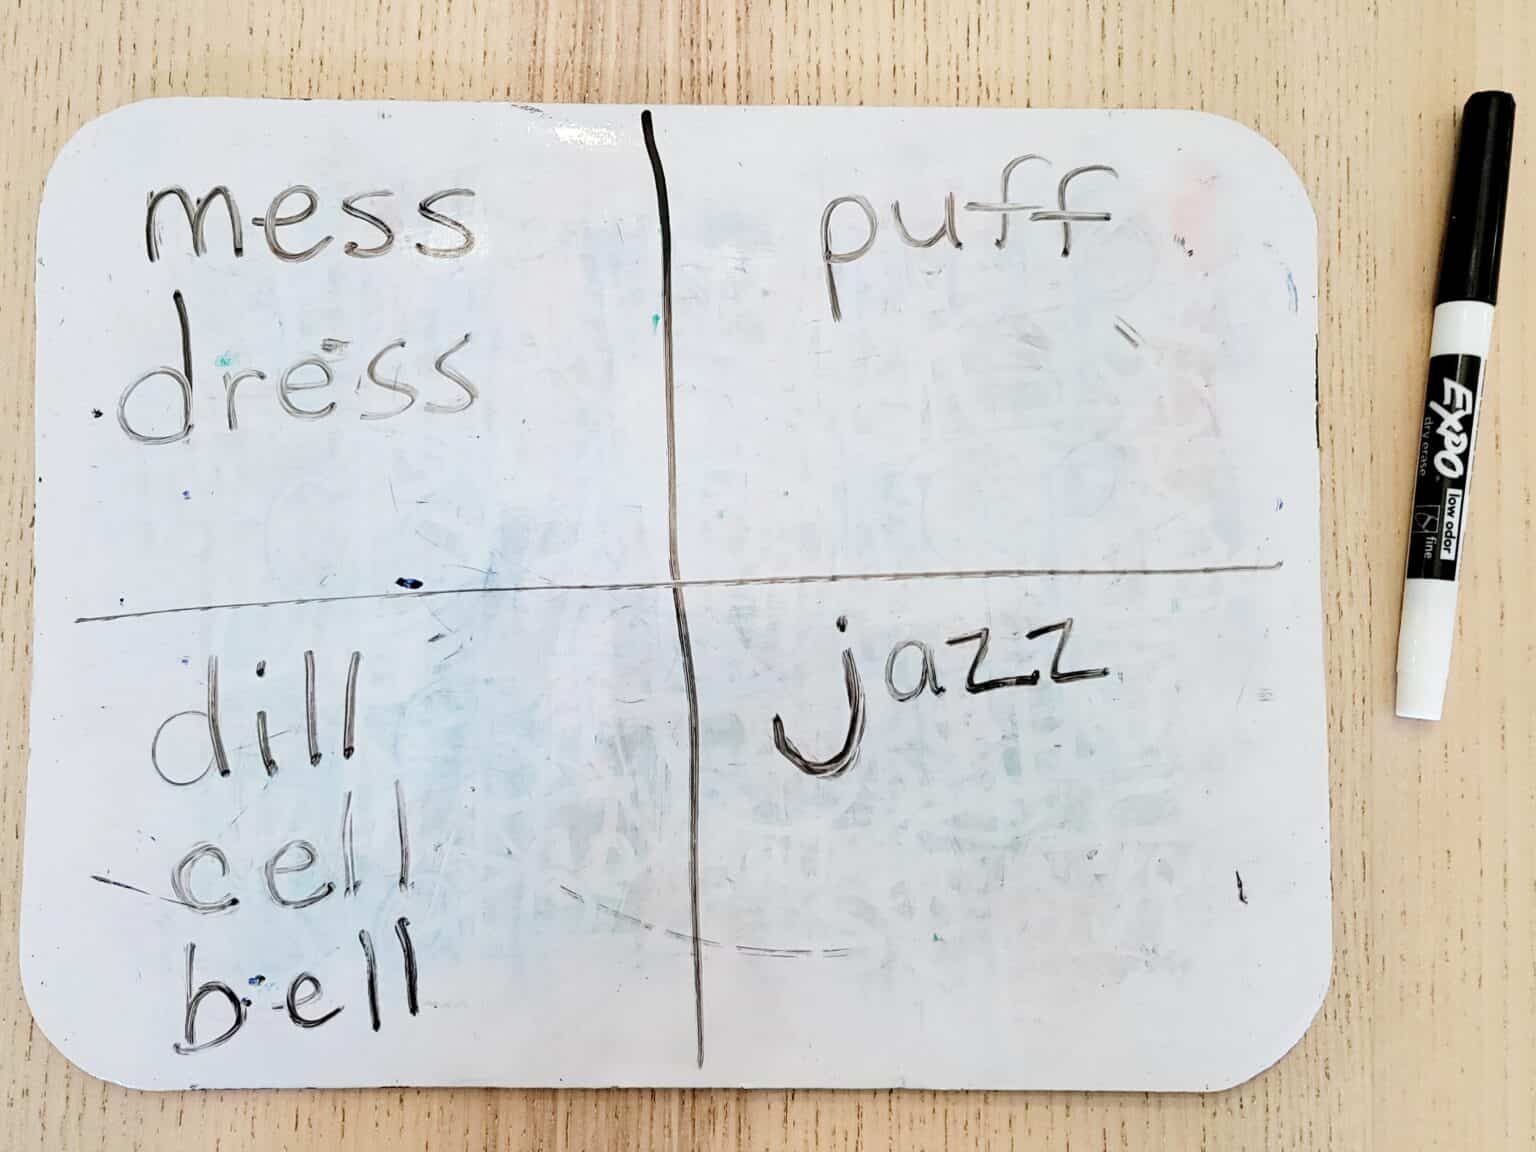 mess
dress
puff
dill
cell
bell
jazz
EXPO
dry erase
low odor
fine